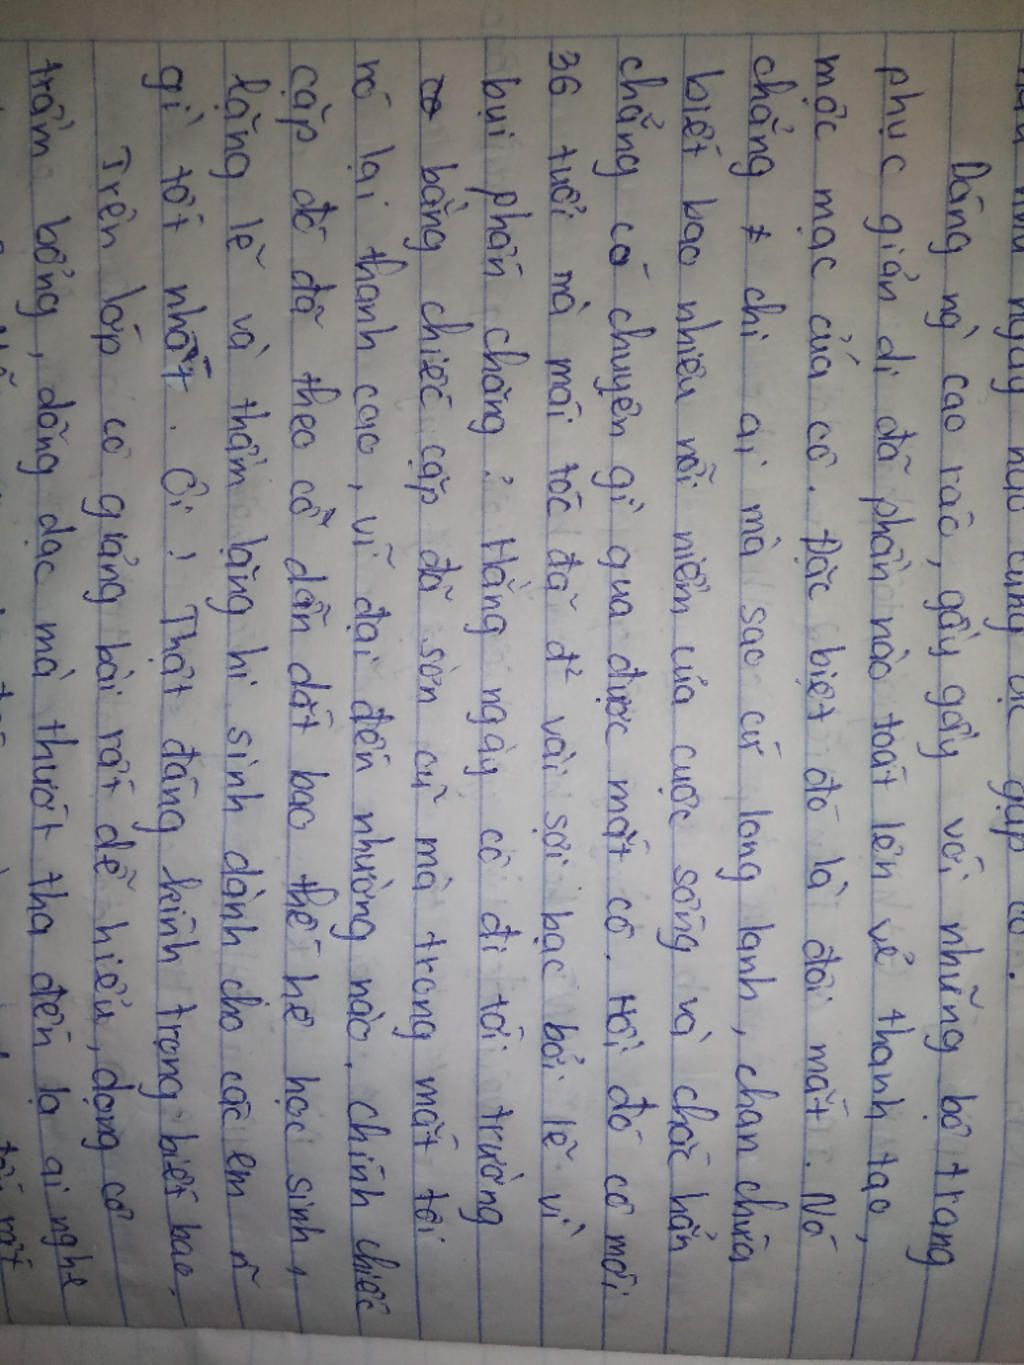 ngày nào cũng được gặp cô.
Dáng cô cao ráo, gầy gầy với những bộ trang
phục giản dị đã phần nào toát lên vẻ thanh tao,
mộc mạc của cô. Đặc biệt đó là đôi mắt. Nó
chẳng chỉ ai mà sao cứ long lanh, chan chứa
biết bao nhiêu nỗi niềm của cuộc sống và chắc hẳn
chẳng có chuyện gì qua được mắt cô. Hồi đó cô mới
36 tuổi mà mái tóc đã vài sợi bạc bởi lẽ vì
bụi phấn chăng? Hằng ngày cô đi tới trường
bằng chiếc cặp đã sờn cũ mà trong mắt tôi
nó lại thanh cao, vĩ đại đến nhường nào. Chính chiếc
cặp đó đã theo cô dẫn dắt bao thế hệ học sinh,
lặng lẽ và thầm lặng hi sinh dành cho các em
gì tốt nhất. Ôi! Thật đáng kính trọng biết bao.
Trên lớp cô giảng bài rất dễ hiểu, dọng cô
trầm bổng, dõng dạc mà thướt tha đến lạ ai nghe